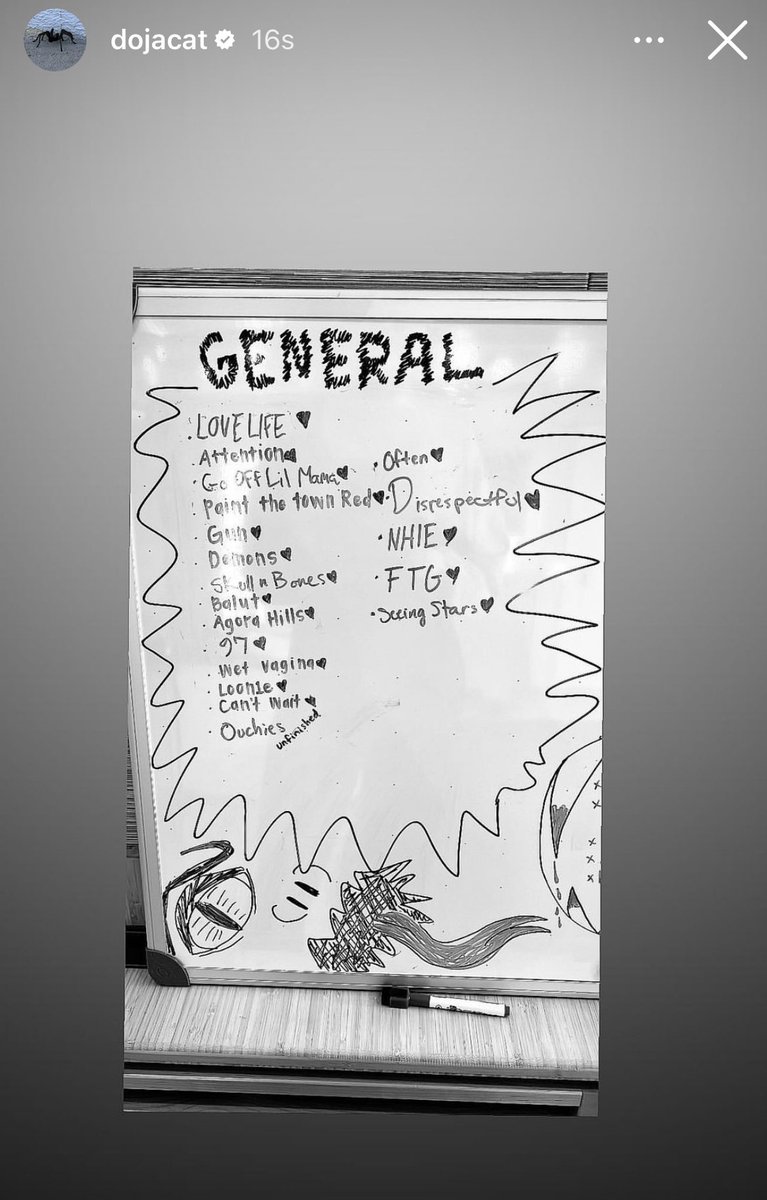 dojacat 16s
GENERAL
LOVE LIFE
Attention
Go Off Lil Mama
Paint the town Red
Gun
Demons
Skull n Bones
Balut
Agora Hills
97
Wet Vagina
Loonie
Can't Wait
Ouchies unfinished
Often
Disrespectful
NHIE
FTG
Seeing Stars